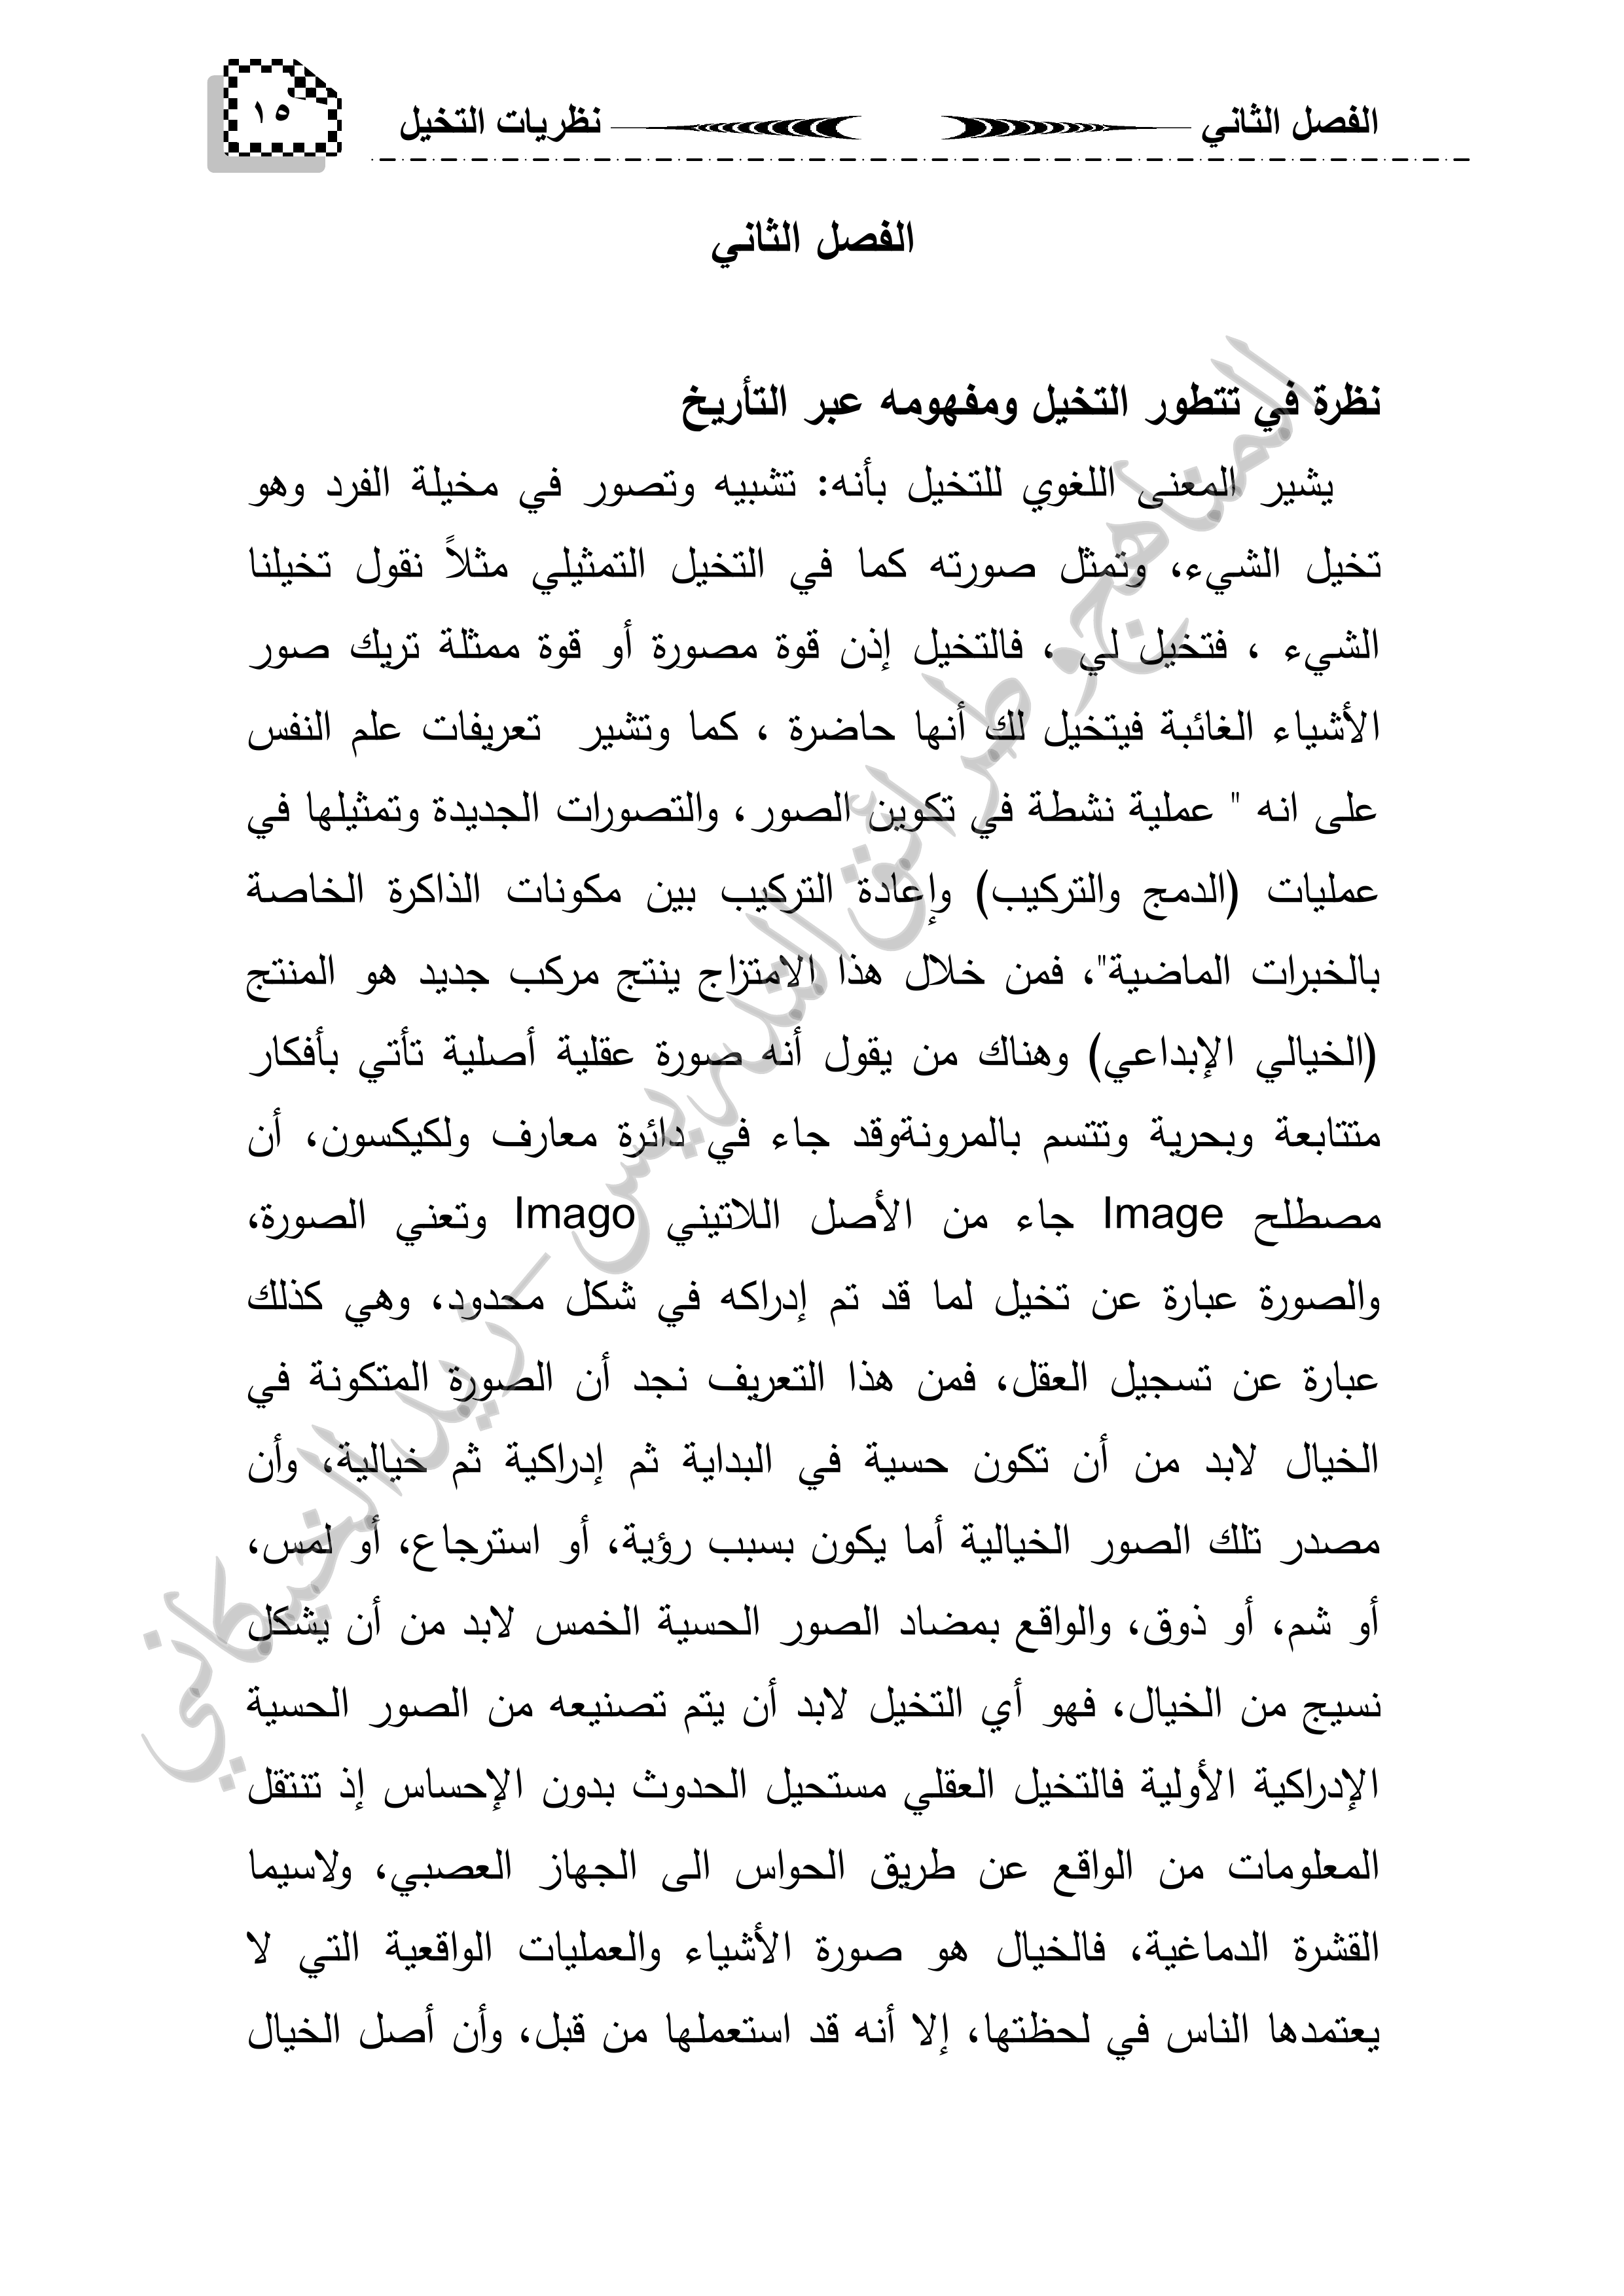 الفصل الثاني نظريات التخيل ١٥
الفصل الثاني
نظرة في تتطور التخيل ومفهومه عبر التأريخ
يشير المعنى اللغوي للتخيل بأنه: تشبيه وتصور في مخيلة الفرد وهو
تخيل الشيء، وتمثل صورته كما في التخيل التمثيلي مثلاً نقول تخيلنا
الشيء ، فتخيل لي ، فالتخيل إذن قوة مصورة أو قوة ممثلة تريك صور
الأشياء الغائبة فيتخيل لك أنها حاضرة ، كما وتشير تعريفات علم النفس
على انه " عملية نشطة في تكوين الصور، والتصورات الجديدة وتمثيلها في
عمليات (الدمج والتركيب) وإعادة التركيب بين مكونات الذاكرة الخاصة
بالخبرات الماضية"، فمن خلال هذا الامتزاج ينتج مركب جديد هو المنتج
(الخيالي الإبداعي) وهناك من يقول أنه صورة عقلية أصلية تأتي بأفكار
متتابعة وبحرية وتتسم بالمرونةوقد جاء في دائرة معارف ولكيكسون، أن
مصطلح Image جاء من الأصل اللاتيني Imago وتعني الصورة،
والصورة عبارة عن تخيل لما قد تم إدراكه في شكل محدود، وهي كذلك
عبارة عن تسجيل العقل، فمن هذا التعريف نجد أن الصورة المتكونة في
الخيال لابد من أن تكون حسية في البداية ثم إدراكية ثم خيالية، وأن
مصدر تلك الصور الخيالية أما يكون بسبب رؤية، أو استرجاع، أو لمس،
أو شم، أو ذوق، والواقع بمضاد الصور الحسية الخمس لابد من أن يشكل
نسيج من الخيال، فهو أي التخيل لابد أن يتم تصنيعه من الصور الحسية
الإدراكية الأولية فالتخيل العقلي مستحيل الحدوث بدون الإحساس إذ تنتقل
المعلومات من الواقع عن طريق الحواس الى الجهاز العصبي، ولاسيما
القشرة الدماغية، فالخيال هو صورة الأشياء والعمليات الواقعية التي لا
يعتمدها الناس في لحظتها، إلا أنه قد استعملها من قبل، وأن أصل الخيال
المناهج وطرائق التدريس – زيد الخيكاني